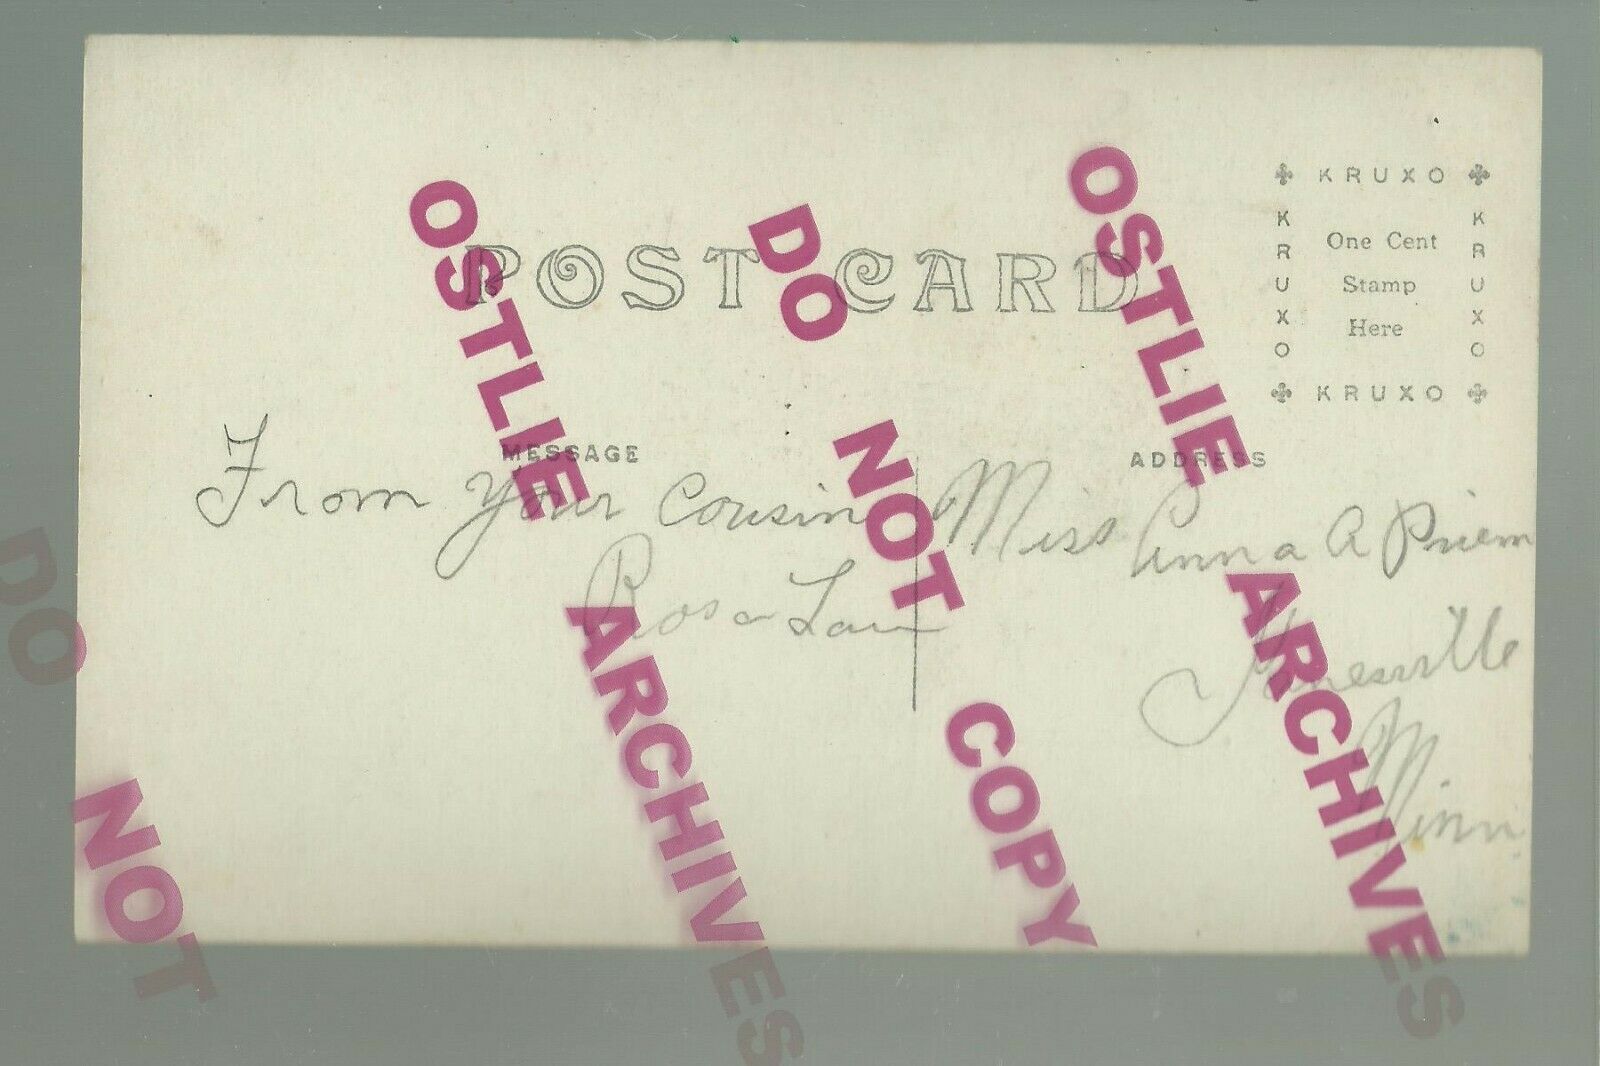 POST CARD
KRUXO
KRUXO
One Cent
Stamp
Here
KRUXO
KRUXO
MESSAGE
ADDRESS
From your cousin
Rosa
Miss Anna A Priem
Minn
OSTLIE ARCHIVES
DO NOT COPY
OSTLIE ARCHIVES
DO NOT